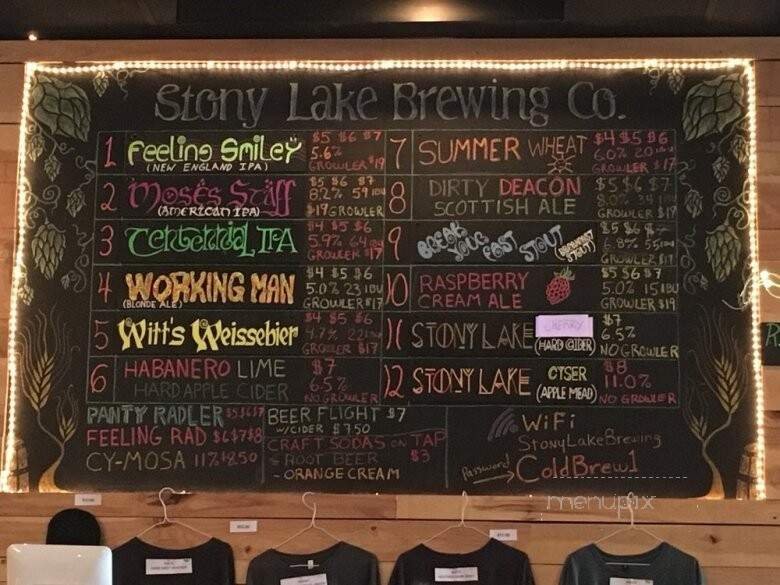 Stony Lake Brewing Co.
1 Feeling Smiley
(NEW ENGLAND IPA)
$5 $6 $7
5.6%
GROWLER $19
2 Moses Staff
(AMERICAN IPA)
$5 $6 $7
8.2% 59 IBU
$19 GROWLER
3 Centennial IPA
$4 $5 $6
5.9% 64 IBU
GROWLER $17
4 WORKING MAN
(BLONDE ALE)
$4 $5 $6
5.0% 23 IBU
GROWLER $17
5 Witt's Weissebier
$4 $5 $6
4.7% 22 IBU
GROWLER $17
6 HABANERO LIME
HARD APPLE CIDER
$7
6.5%
NO GROWLER
7 SUMMER WHEAT
$4 $5 $6
6.0% 20 IBU
GROWLER $17
8 DIRTY DEACON
SCOTTISH ALE
$5 $6 $7
8.0% 34 IBU
GROWLER $19
9 BREAK YOUR FAST STOUT
(BREAKFAST STOUT)
$5 $6 $7
6.8% 55 IBU
GROWLER $19
10 RASPBERRY
CREAM ALE
$5 $6 $7
5.0% 15 IBU
GROWLER $19
11 STONY LAKE
CHERRY
(HARD CIDER)
$7
6.5%
NO GROWLER
12 STONY LAKE
CYSER
(APPLE MEAD)
$8
11.0%
NO GROWLER
PANTY RADLER $5 $6 $7
FEELING RAD $6 $7 $8
CY-MOSA 11% $2.50
BEER FLIGHT $7
W/CIDER $7.50
CRAFT SODAS ON TAP
- ROOT BEER $3
- ORANGE CREAM
WiFi
StonyLakeBrewing
Password ColdBrew1
menupix